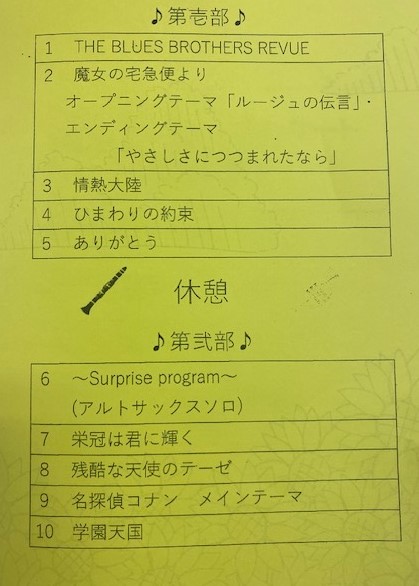 ♪第壱部♪
1 THE BLUES BROTHERS REVUE
2 魔女の宅急便より
オープニングテーマ「ルージュの伝言」・
エンディングテーマ
「やさしさにつつまれたなら」
3 情熱大陸
4 ひまわりの約束
5 ありがとう
休憩
♪第弐部♪
6 ～Surprise program～
(アルトサックスソロ)
7 栄冠は君に輝く
8 残酷な天使のテーゼ
9 名探偵コナン　メインテーマ
10 学園天国